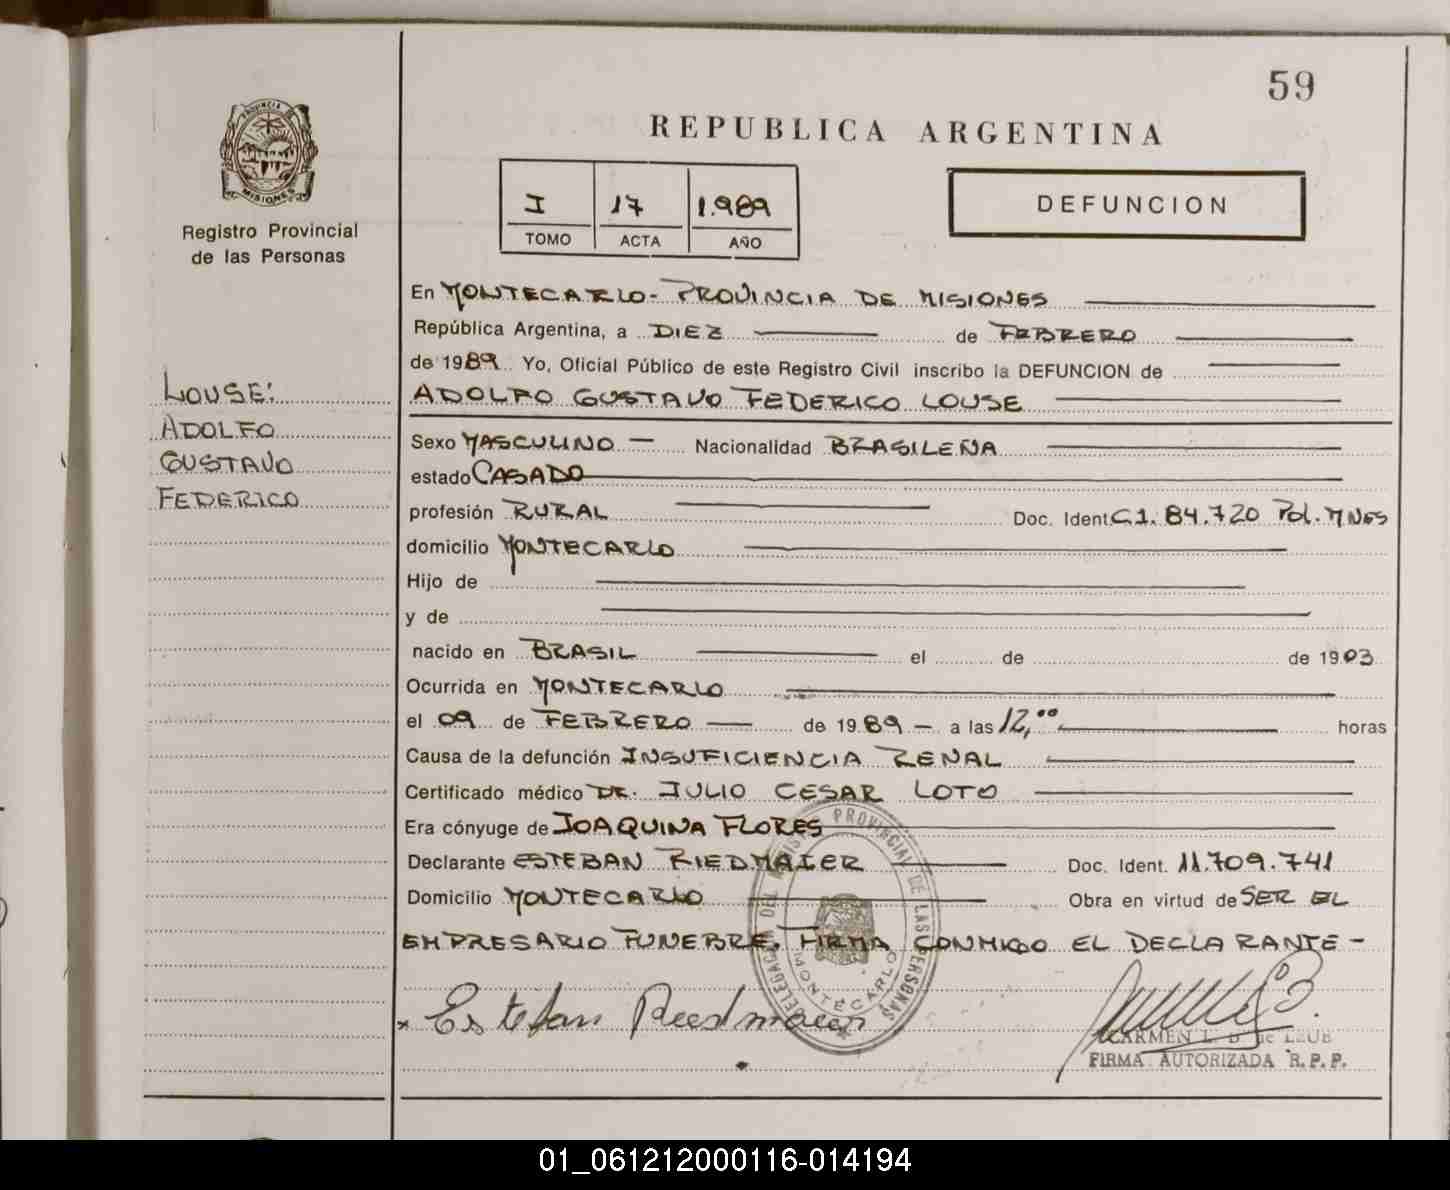 59
REPUBLICA ARGENTINA
PROVINCIA DE
MISIONES
Registro Provincial
de las Personas
I 17 1.989
TOMO ACTA AÑO
DEFUNCION
En MONTECARLO - PROVINCIA DE MISIONES
República Argentina, a DIEZ de FEBRERO
de 1989 Yo, Oficial Público de este Registro Civil inscribo la DEFUNCION de
ADOLFO GUSTAVO FEDERICO LOUSE
LOUSE:
ADOLFO
GUSTAVO
FEDERICO
Sexo MASCULINO — Nacionalidad BRASILEÑA
estado CASADO
profesión RURAL Doc. Ident. C1. 84.720 Pol. MNES
domicilio MONTECARLO
Hijo de
y de
nacido en BRASIL el de de 1903
Ocurrida en MONTECARLO
el 09 de FEBRERO — de 1989 — a las 12,00 horas
Causa de la defunción INSUFICIENCIA RENAL
Certificado médico DR. JULIO CESAR LOTO
Era cónyuge de JOAQUINA FLORES
Declarante ESTEBAN RIEDMAIER Doc. Ident. 11.709.741
Domicilio MONTECARLO Obra en virtud de SER EL
EMPRESARIO FUNEBRE. FIRMA CONMIGO EL DECLARANTE -
DELEGACIA DEL REGISTRO PROVINCIAL DE LAS PERSONAS
MONTECARLO
x Esteban Riedmaier
CARMEN L. B de LEUB
FIRMA AUTORIZADA R. P. P.
01_061212000116-014194